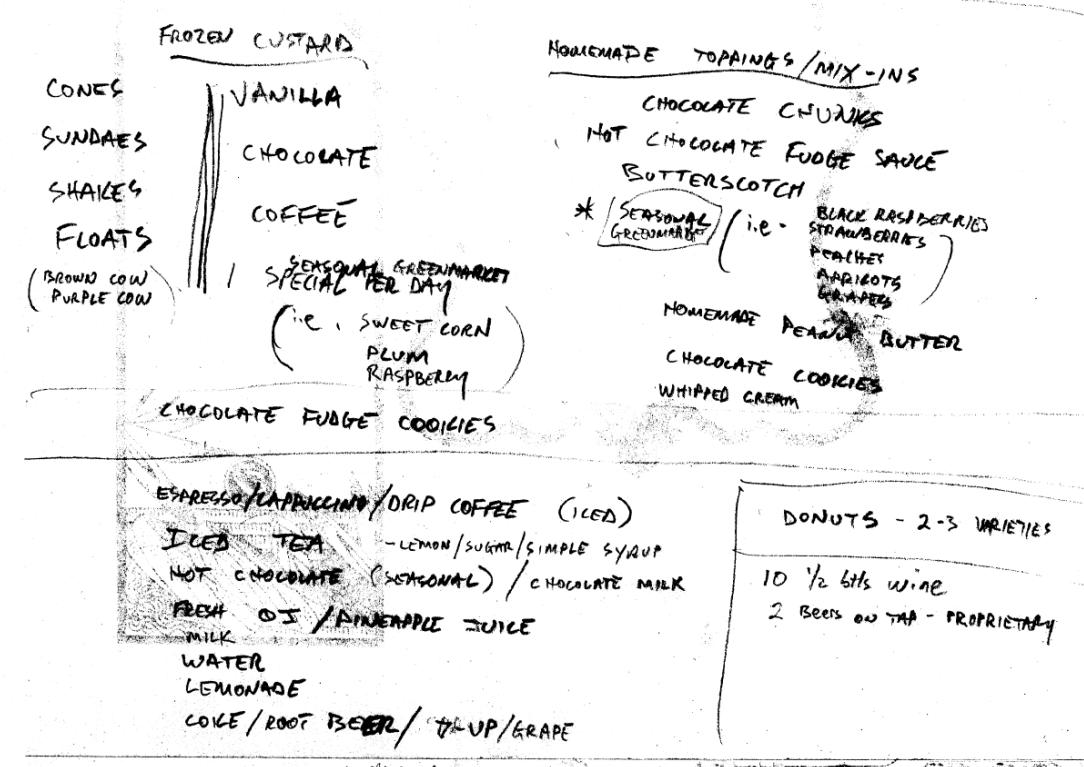 FROZEN CUSTARD
CONES
SUNDAES
SHAKES
FLOATS
(BROWN COW
PURPLE COW)
VANILLA
CHOCOLATE
COFFEE
1 SEASONAL GREENMARKET
SPECIAL PER DAY
(i.e. SWEET CORN
PLUM
RASPBERRY)
CHOCOLATE FUDGE COOKIES
HOMEMADE TOPPINGS/MIX-INS
CHOCOLATE CHUNKS
HOT CHOCOLATE FUDGE SAUCE
BUTTERSCOTCH
* SEASONAL
GREENMARKET
(i.e - BLACK RASPBERRIES
STRAWBERRIES
PEACHES
APRICOTS
GRAPES)
HOMEMADE PEANUT BUTTER
CHOCOLATE COOKIES
WHIPPED CREAM
ESPRESSO/CAPPUCCINO/DRIP COFFEE (ICED)
ICED TEA - LEMON/SUGAR/SIMPLE SYRUP
HOT CHOCOLATE (SEASONAL) / CHOCOLATE MILK
FRESH OJ / PINEAPPLE JUICE
MILK
WATER
LEMONADE
COKE/ROOT BEER/ UP/GRAPE
DONUTS - 2-3 VARIETIES
10 1/2 btls wine
2 Beers on TAP - PROPRIETARY